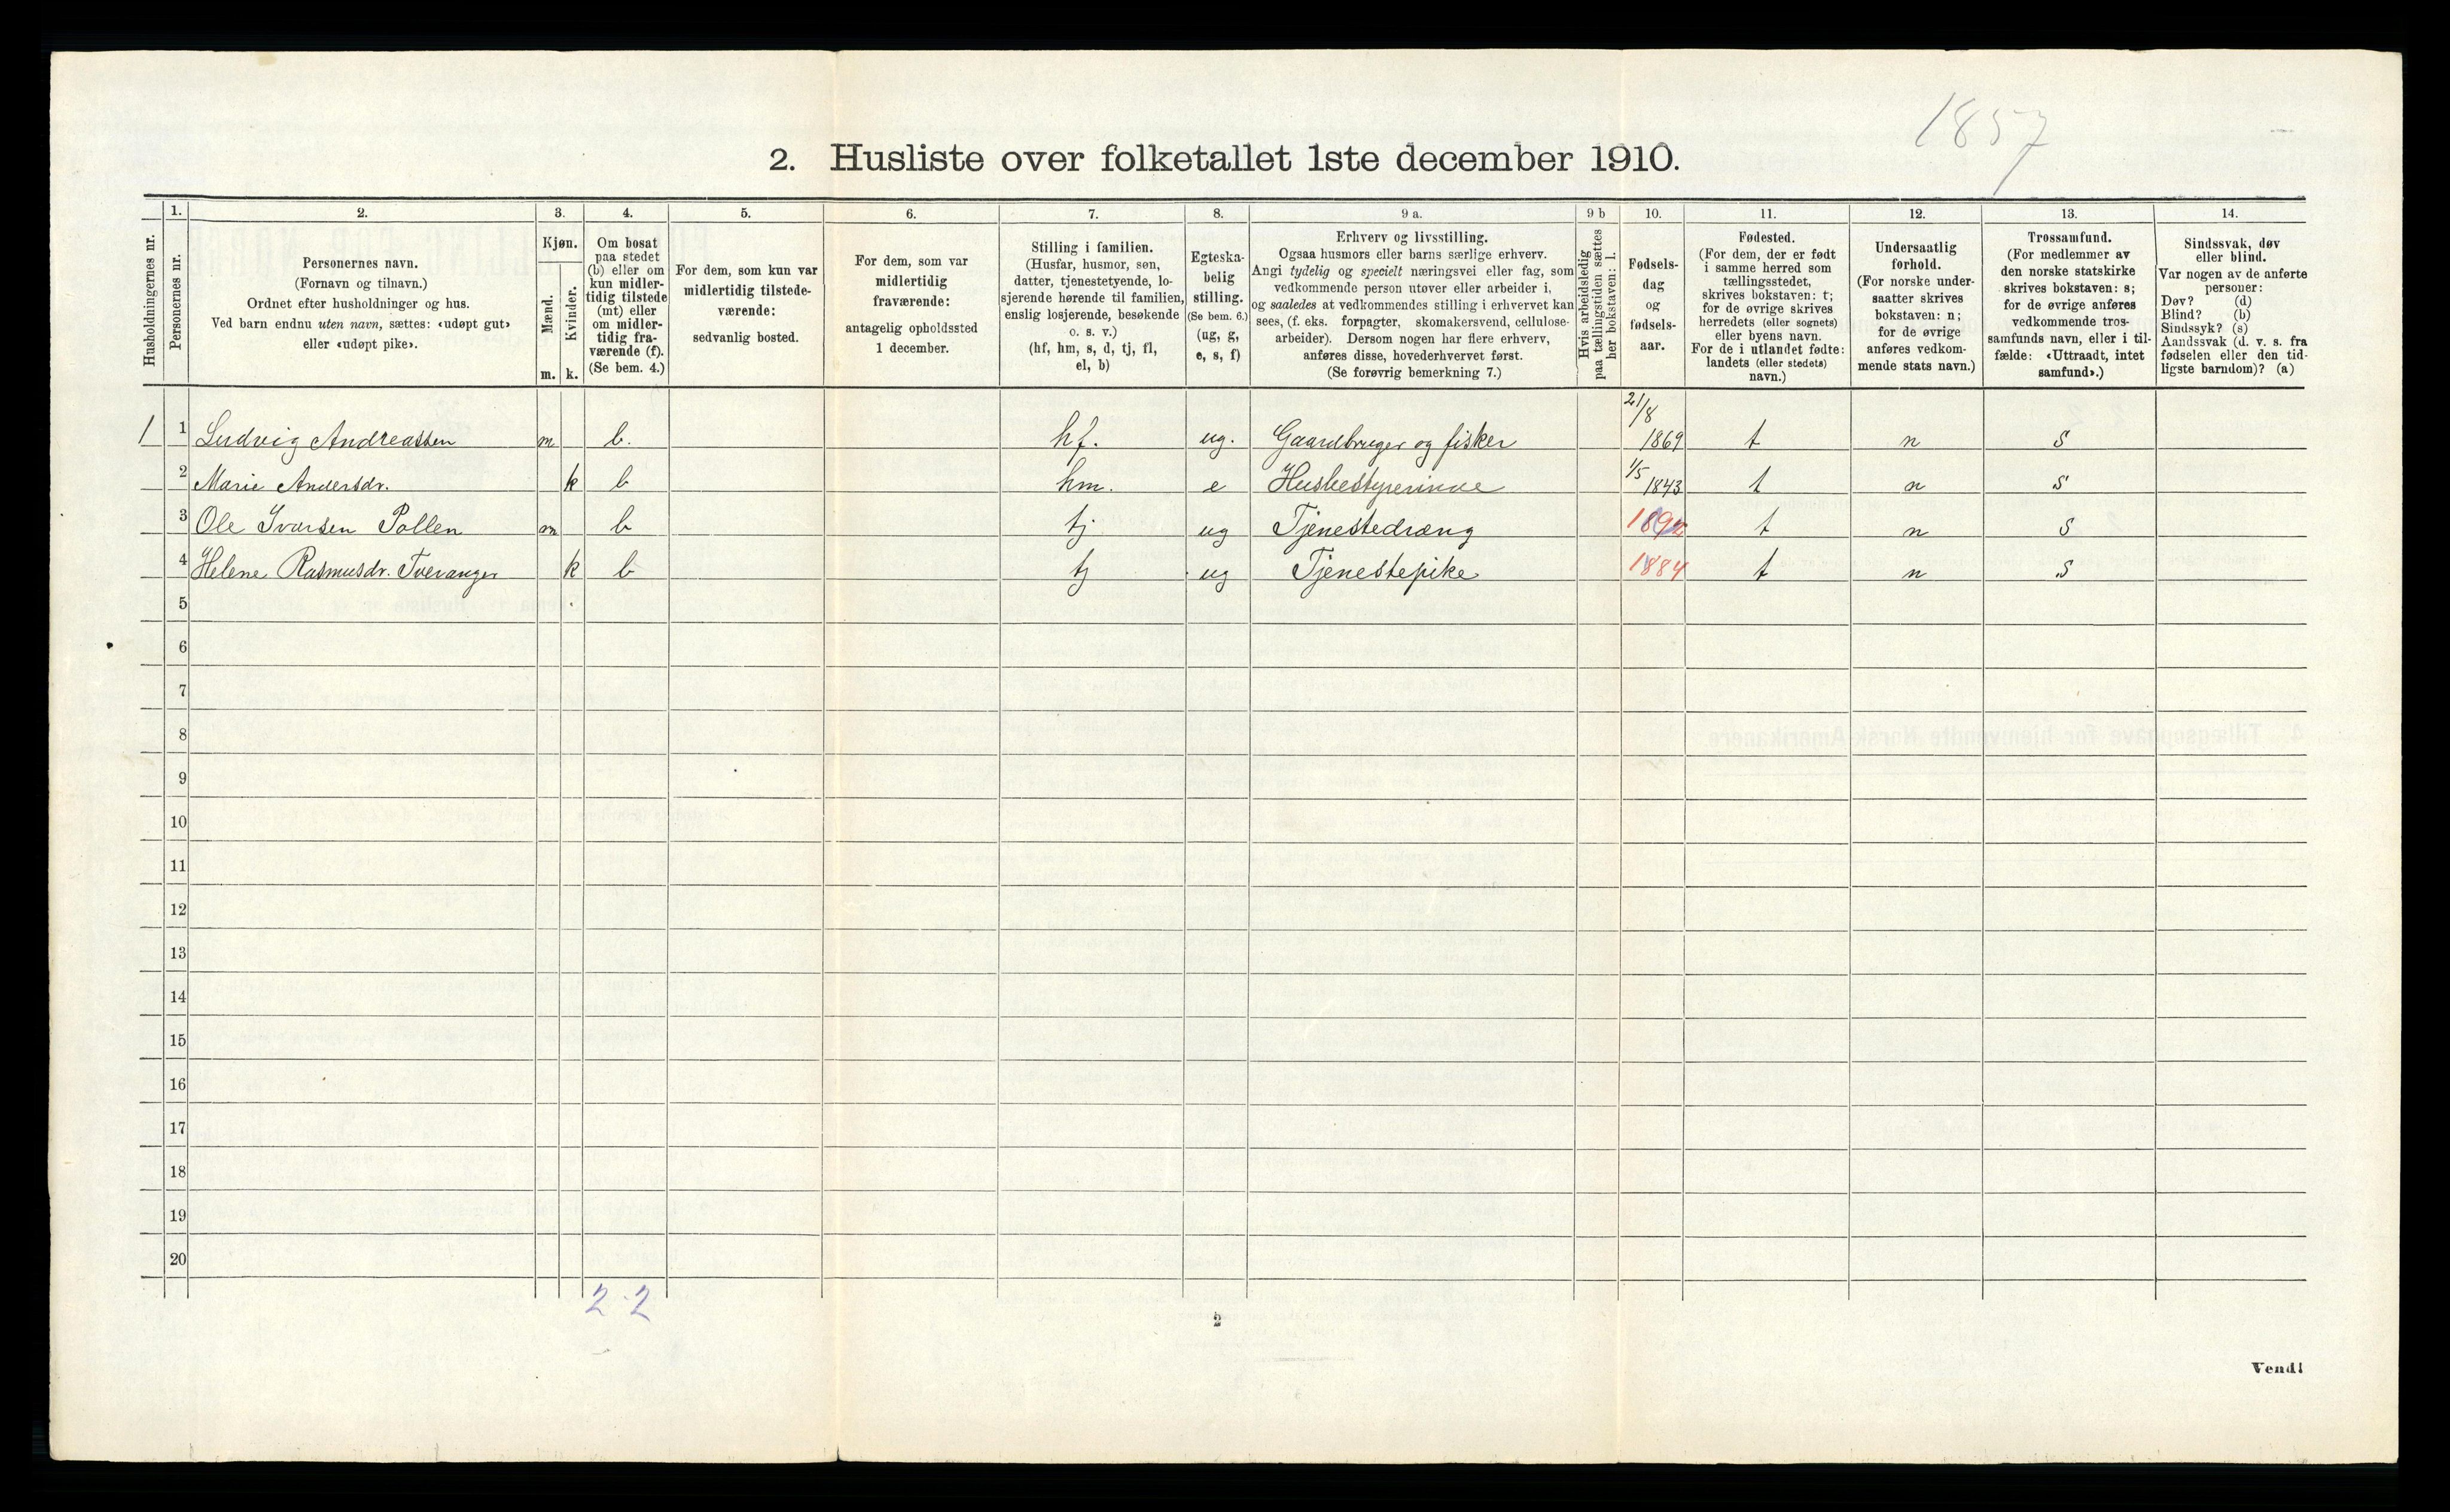 1857
2. Husliste over folketallet 1ste december 1910.
1. 2. 3. 4. 5. 6. 7. 8. 9 a. 9 b 10. 11. 12. 13. 14.
Husholdningernes nr.
Personernes nr.
Personernes navn.
(Fornavn og tilnavn.)
Ordnet efter husholdninger og hus.
Ved barn endnu uten navn, sættes: «udøpt gut»
eller «udøpt pike».
Kjøn.
Mænd.
Kvinder.
m. k.
Om bosat
paa stedet
(b) eller om
kun midler-
tidig tilstede
(mt) eller
om midler-
tidig fra-
værende (f).
(Se bem. 4.)
For dem, som kun var
midlertidig tilstede-
værende:
sedvanlig bosted.
For dem, som var
midlertidig
fraværende:
antagelig opholdssted
1 december.
Stilling i familien.
(Husfar, husmor, søn,
datter, tjenestetyende, lo-
sjerende hørende til familien,
enslig losjerende, besøkende
o. s. v.)
(hf, hm, s, d, tj, fl,
el, b)
Egteska-
belig
stilling.
(Se bem. 6.)
(ug, g,
e, s, f)
Erhverv og livsstilling.
Ogsaa husmors eller barns særlige erhverv.
Angi tydelig og specielt næringsvei eller fag, som
vedkommende person utøver eller arbeider i,
og saaledes at vedkommendes stilling i erhvervet kan
sees, (f. eks. forpagter, skomakersvend, cellulose-
arbeider). Dersom nogen har flere erhverv,
anføres disse, hovederhvervet først.
(Se forøvrig bemerkning 7.)
Hvis arbeidsledig
paa tællingstiden sættes
her bokstaven: l.
Fødsels-
dag
og
fødsels-
aar.
Fødested.
(For dem, der er født
i samme herred som
tællingsstedet,
skrives bokstaven: t;
for de øvrige skrives
herredets (eller sognets)
eller byens navn.
For de i utlandet fødte:
landets (eller stedets)
navn.)
Undersaatlig
forhold.
(For norske under-
saatter skrives
bokstaven: n;
for de øvrige
anføres vedkom-
mende stats navn.)
Trossamfund.
(For medlemmer av
den norske statskirke
skrives bokstaven: s;
for de øvrige anføres
vedkommende tros-
samfunds navn, eller i til-
fælde: «Uttraadt, intet
samfund».)
Sindssvak, døv
eller blind.
Var nogen av de anførte
personer:
Døv? (d)
Blind? (b)
Sindssyk? (s)
Aandssvak (d. v. s. fra
fødselen eller den tid-
ligste barndom)? (a)
1 1 Ludvig Andreassen m b. hf. ug. Gaardbruger og fisker 21/8 1869 t n s
2 Marie Andersdr. k b hm. e Husbestyrerinde 1/5 1843 t n s
3 Ole Ivarsen Pollen m b tj ug Tjenestedræng 1892 t n s
4 Helene Rasmusdr. Tveranger k b tj ug Tjenestepike 1884 t n s
5
6
7
8
9
10
11
12
13
14
15
16
17
18
19
20
2 · 2
2
Vend!